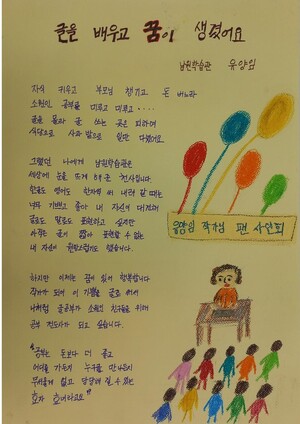 글을 배우고 꿈이 생겼어요
남원학습관 유양임
자식 키우고 부모님 챙기고 돈 버느라
소원인 공부를 미루고 미루고 ····
글을 몰라 글 쓰는 곳은 피하며
식당으로 사과 밭으로 일만 다녔어요
그랬던 나에게 남원학습관은
세상에 눈을 뜨게 해 준 천사입니다
한글도 영어도 한자씩 써 내려 갈 때는
너무 기쁘고 좋다 내 자신이 대견해
글로도 말로도 표현하고 싶지만
사투른 글이 짧아 표현할 수 없는
내 자신이 원망스럽기도 했습니다
하지만 이제는 꿈이 있어 행복합니다
작가가 되어 이 기쁨을 글로 써서
나처럼 글공부가 소원인 친구들을 위해
공부 전도사가 되고 싶습니다
"공부는 돈보다 더 좋고
어디를 가든지 누구를 만나든지
무서울게 없고 당당해 질 수 있는
효자 효녀라고요"
유양임 작가님 팬 사인회